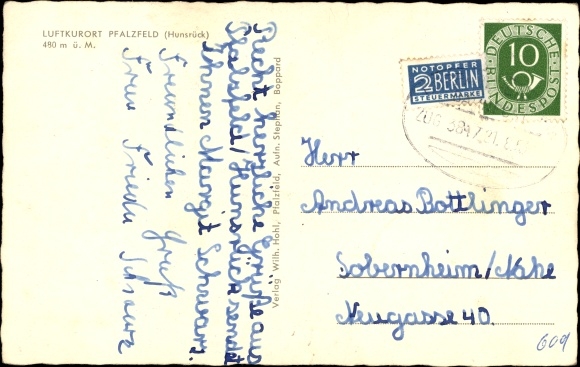 LUFTKURORT PFALZFELD (Hunsrück)
480 m ü. M.
Recht herzliche Grüße aus
Pfalzfeld/Hunsrück sendet
Ihnen Margit Schwarz.
Freundlichen Gruß
Frau Frieda Schwarz
Verlag Wilh. Hohl, Pfalzfeld, Aufn. Stephan, Boppard
NOTOPFER
2 BERLIN
STEUERMARKE
DEUTSCHE
BUNDESPOST
10
ZUG
Herr
Andreas Bottlinger
Sobernheim/Nahe
Neugasse 40.
609